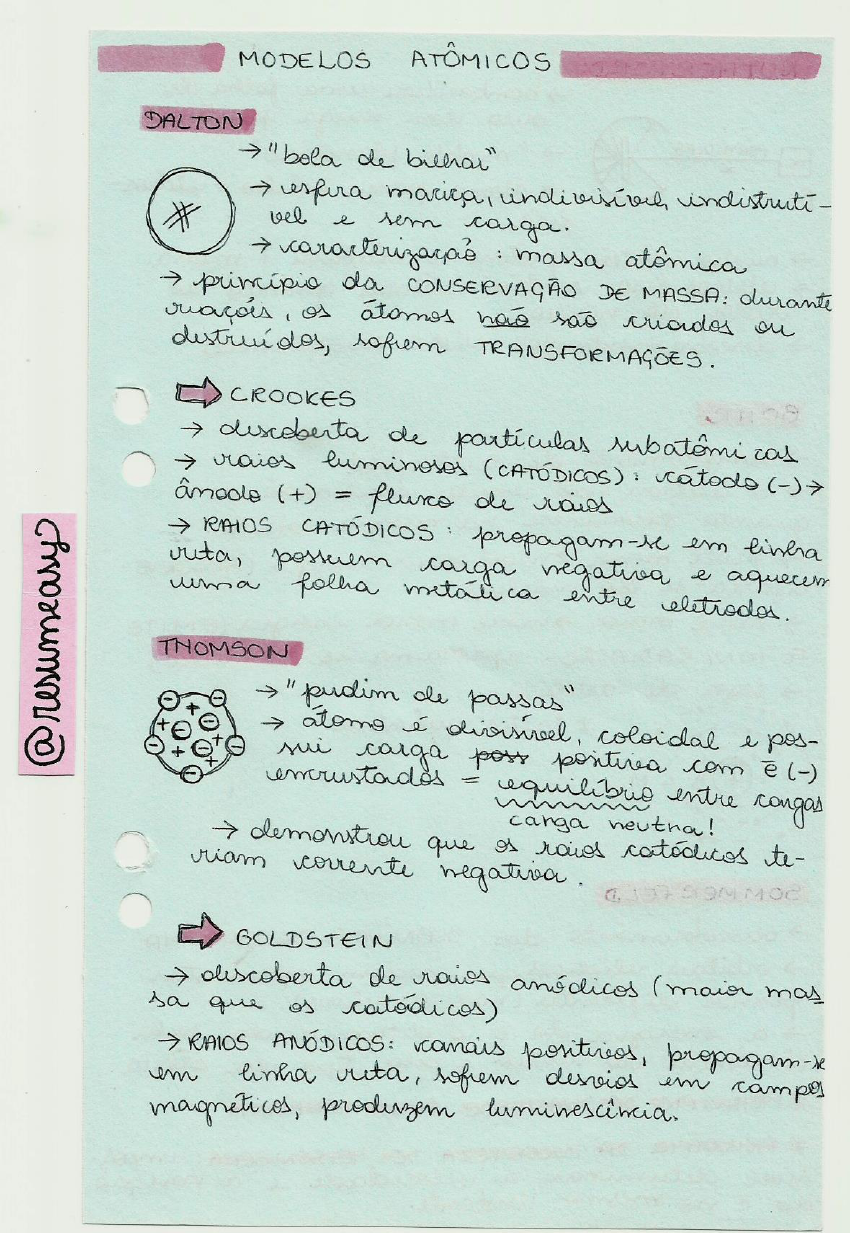 MODELOS ATÔMICOS
DALTON
→ "bola de bilhar"
→ esfera maciça, indivisível, indistrutí-
vel e sem carga.
→ caracterização : massa atômica
→ princípio da CONSERVAÇÃO DE MASSA: durante
reações, os átomos não são criados ou
destruídos, sofrem TRANSFORMAÇÕES.
⇨ CROOKES
→ descoberta de partículas subatômicas
→ raios luminosos (CATÓDICOS) : cátodo (-) →
ânodo (+) = fluxo de raios
→ RAIOS CATÓDICOS : propagam-se em linha
reta, possuem carga negativa e aquecem
uma folha metálica entre eletrodos.
THOMSON
→ "pudim de passas"
→ átomo é divisível, coloidal e pos-
sui carga poss positiva com ē (-)
encrustados = equilíbrio entre cargas
carga neutra!
→ demonstrou que os raios catódicos te-
riam corrente negativa.
⇨ GOLDSTEIN
→ descoberta de raios anódicos (maior mas
sa que os catódicos)
→ RAIOS ANÓDICOS: canais positivos, propagam-se
em linha reta, sofrem desvios em campos
magnéticos, produzem luminescência.
@resumeasy